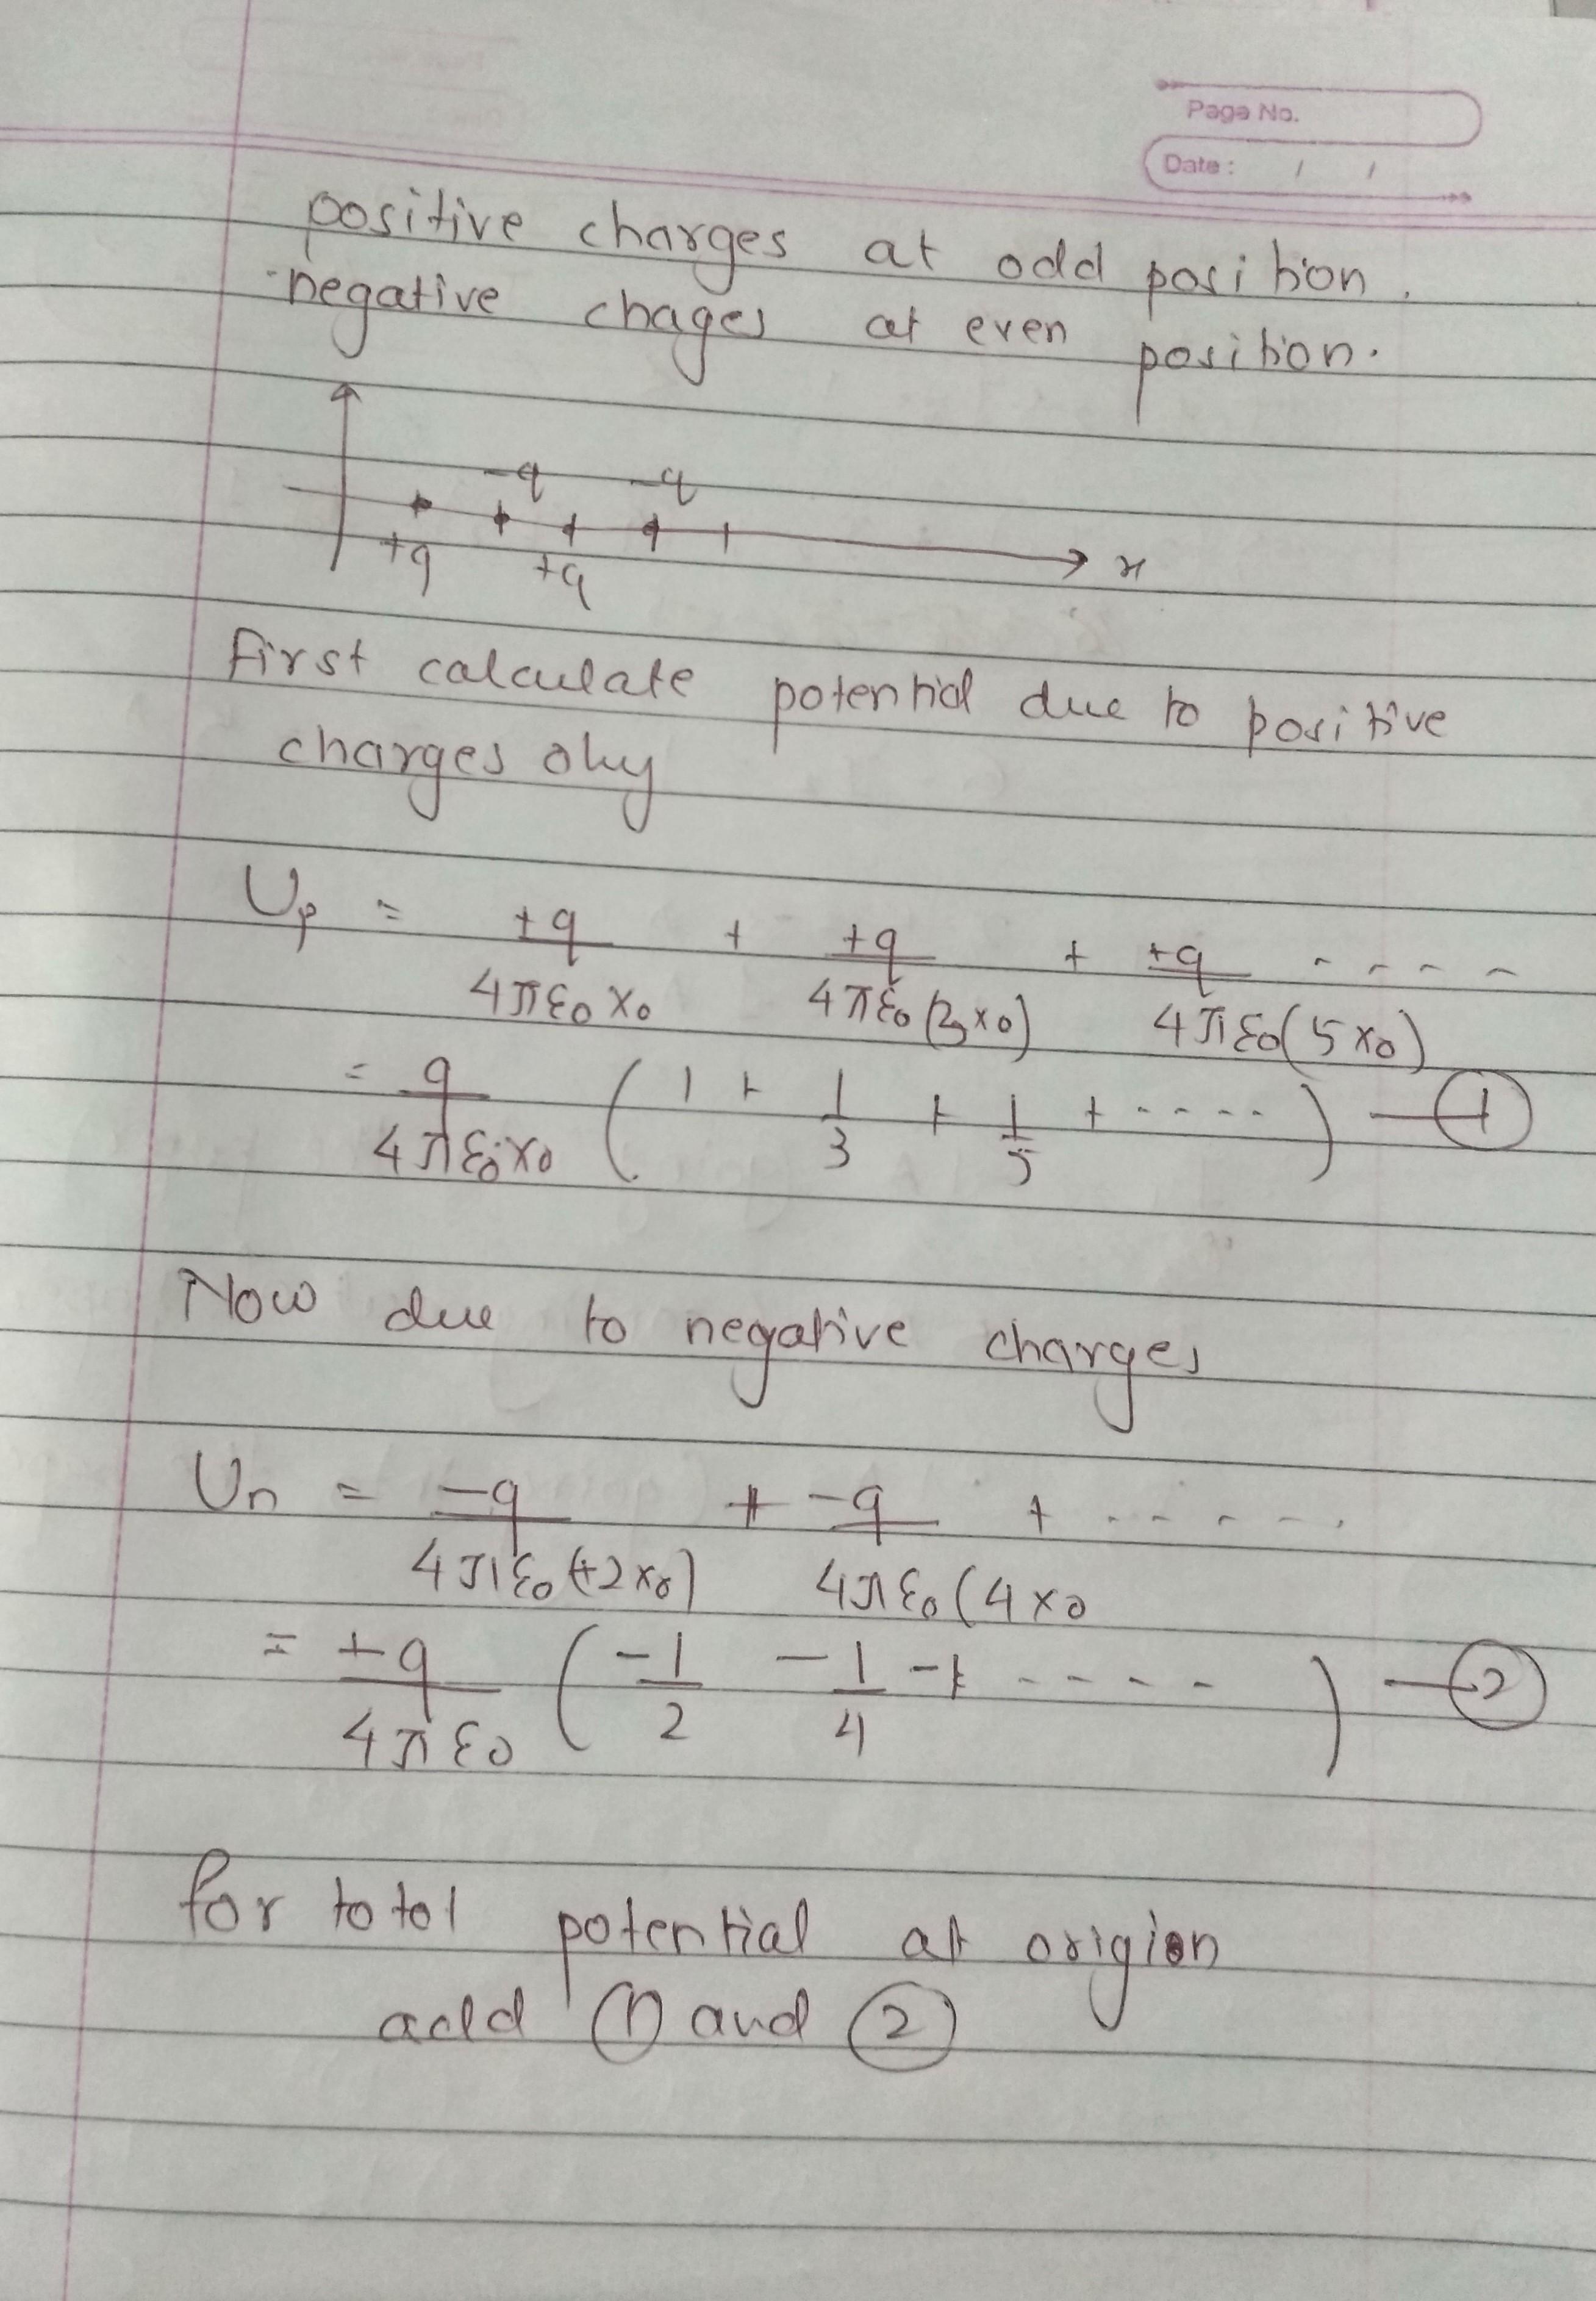 Page No.
Date : / /
positive charges at odd position.
negative chages at even position.
-q -q
+q +q x
First calculate potential due to positive
charges oly
Up = +q/4πε0x0 + +q/4πε0(3x0) + +q/4πε0(5x0) - - - -
= q/4πε0x0 (1 + 1/3 + 1/5 + - - - -) — ①
Now due to negative charges
Un = -q/4πε0(+2x0) + -q/4πε0(4x0 + - - - - - -
= +q/4πε0 (-1/2 - 1/4 - - - - -) — ②
for totol potential at origion
add ① and ②